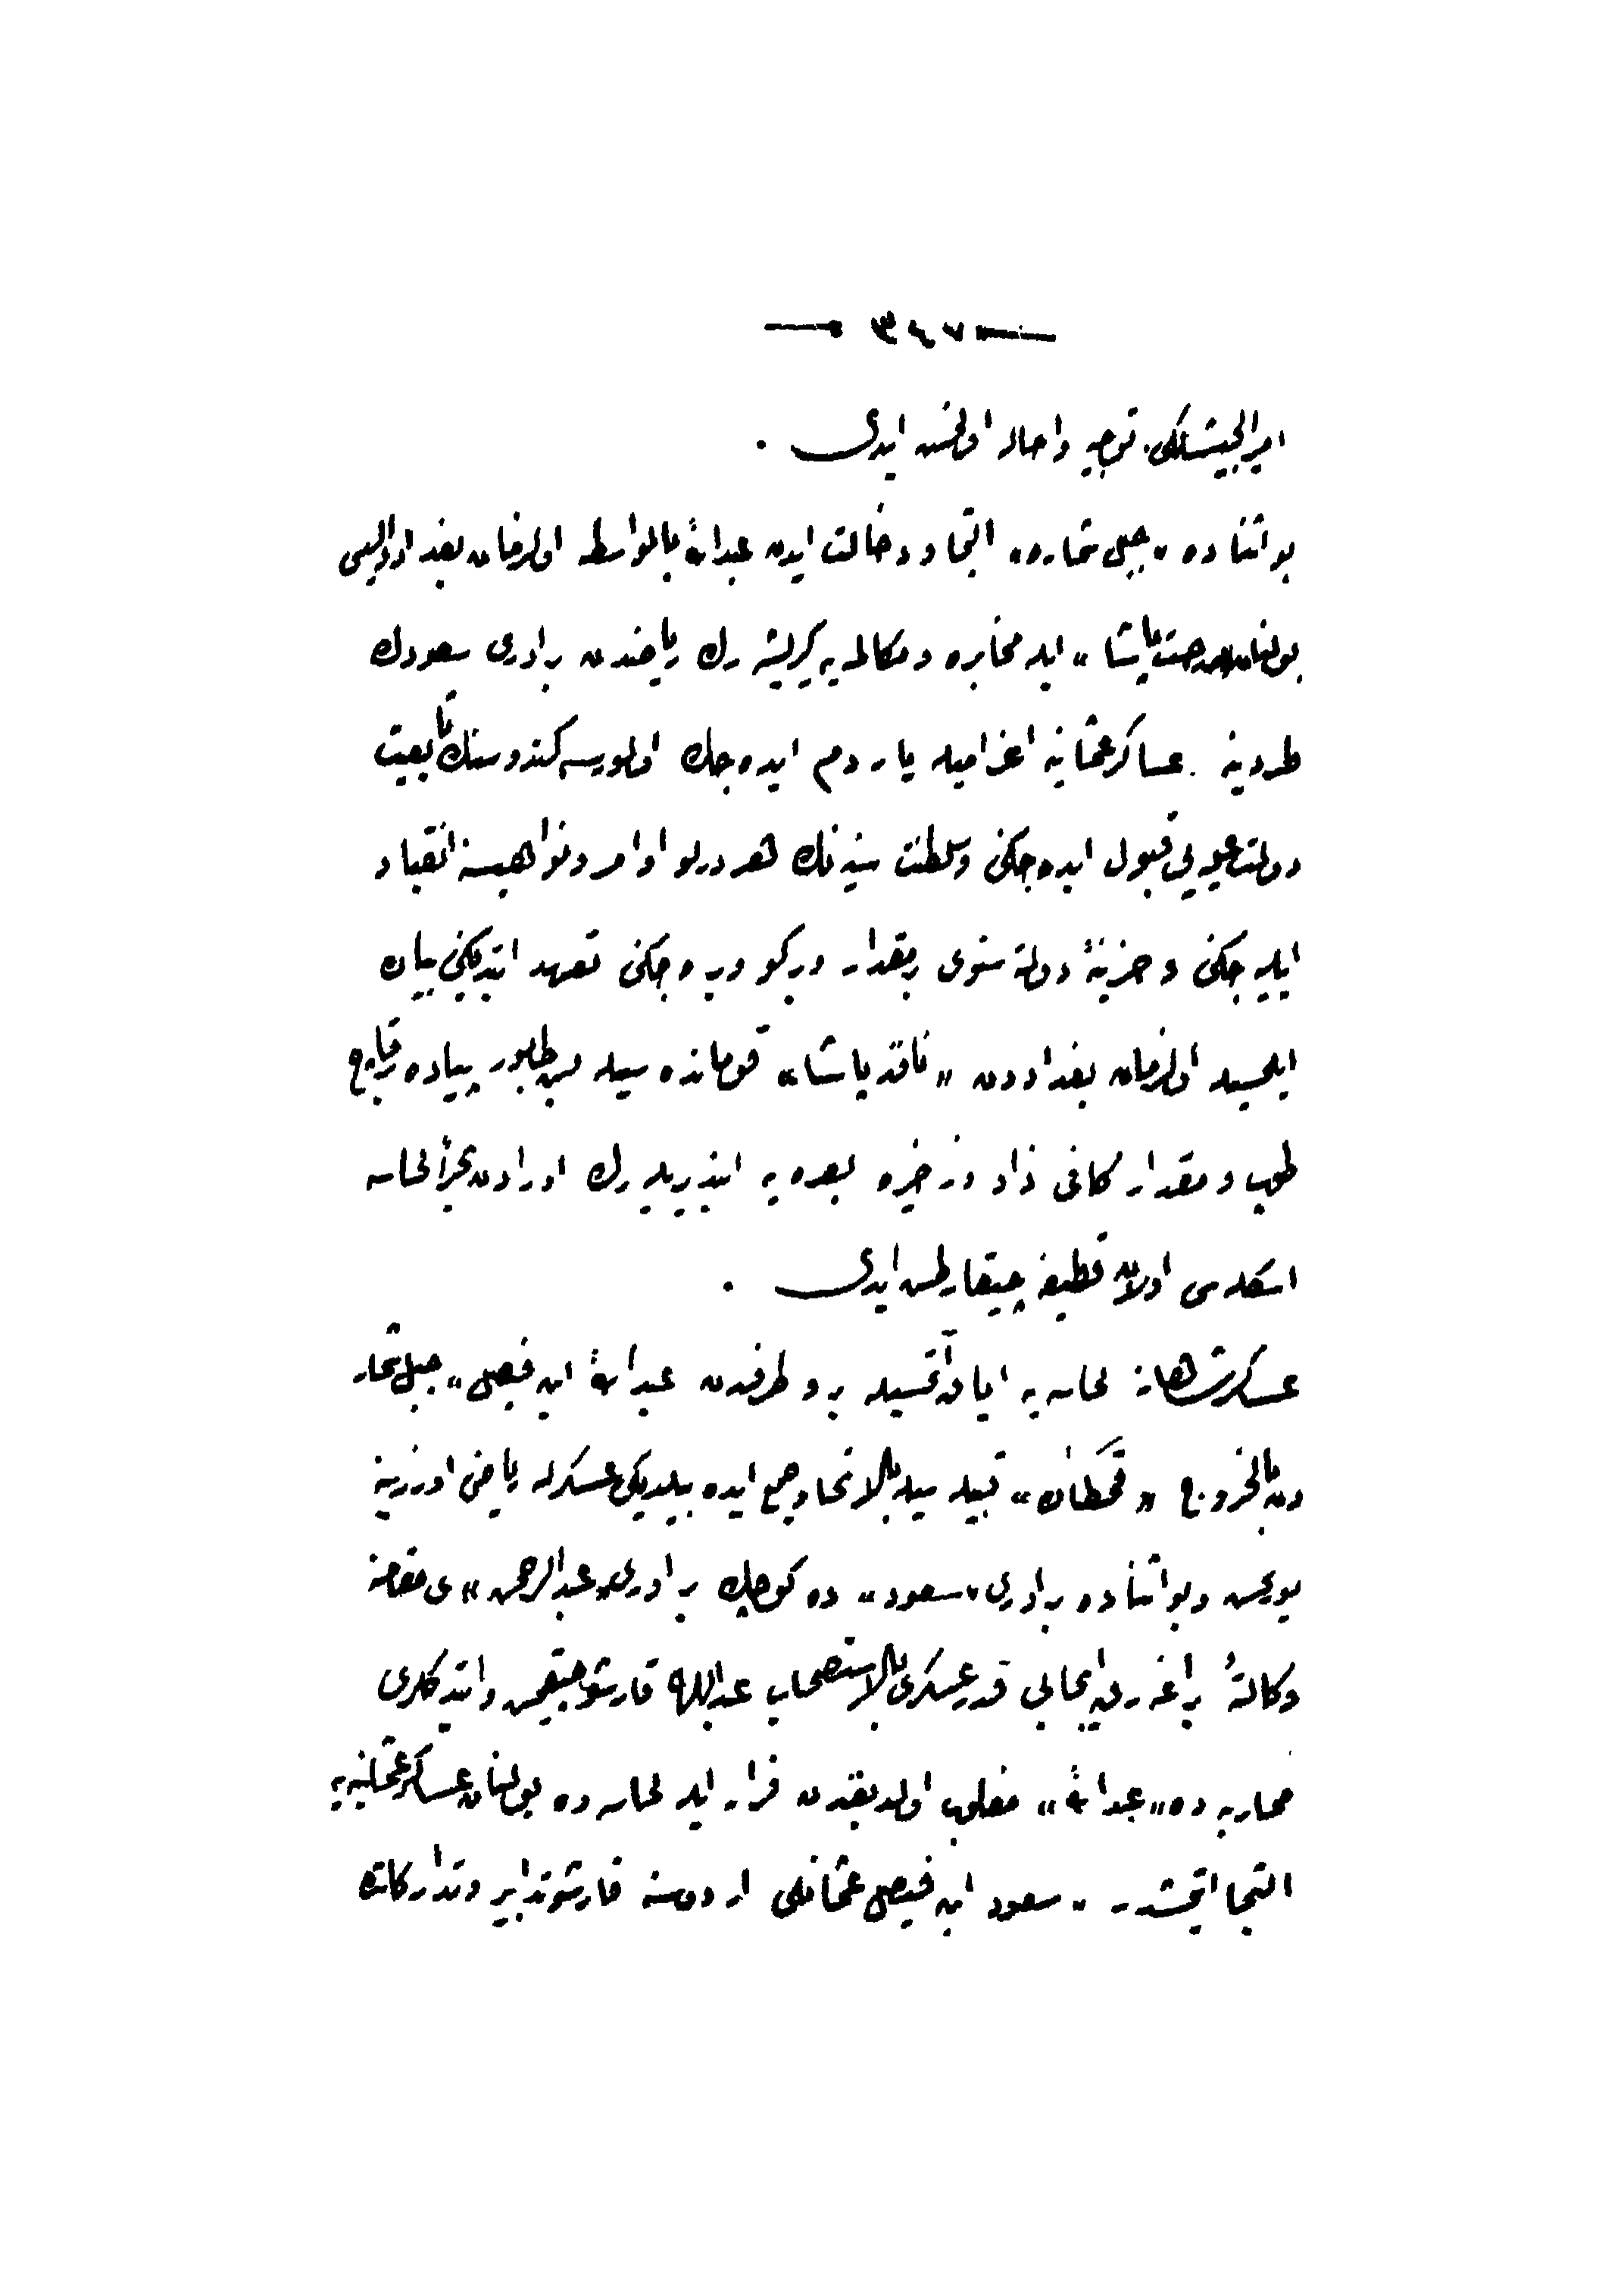 — ٣٤٧ —
امیر الجیشلکی توجیه و احاله اولنمش ایدی .
بو اثناده «جبل شمار» ه التجا و دخالت ایدن عبدالله بالواسطه اولزمان بغداد والیسی
بولنان «مدحت پاشا» ایله مخابره و مکالمه یه کیریشه رك ریاضدن برادری سعودك
طردینه عساکر عثمانیه اعزامیله یاردم ایده جك اولورسه کندوسنك تابعیت
دولت علیه یی قبول ایده جکنی و سلطنت سنیه نك هر درلو اوامر و نواهیسنه انقیاد
ایلیه جکنی و خزینۀ دولته سنوی بر مقدار ویرکو ویره جکنی تعهد ایتدیکنی بیان
ایلمسیله اولزمان بغداددن «نافذ پاشا» قومانده سیله بش طابور پیاده و قاچ
طوپ و مقدار کافی زاد و ذخیره بصره یه ایندیریله رك اورادن بحراً لحسایه
اسکله سی اولان قطیفه چیقارلمش ایدی .
عسکر شاهانه لحسایه ایاق آتمسیله برو طرفدن عبدالله ابن فیصل «جبل شمار»
دن بالخروج «قحطان» قبیله سیله بالاتحاد جمع ایده بیلدیکی عسکرله ریاض اوزرینه
یوریمش و بو اثناده برادری «سعود» ده کوچك برادری «عبدالرحمن» ی مقامنه
وکالةً براغه رق ایجابی قدر عسکری بالاستصحاب عبدالله قارشو چیقمش و ایتدکلری
محاربه ده «عبدالله» مغلوب اولدیغندن فرار ایله لحساده بولنان عساکر عثمانیه یه
التجا ایتمشدر . سعود ابن فیصل عثمانلی اردوسنه قارشو تدابیر و تدارکاته